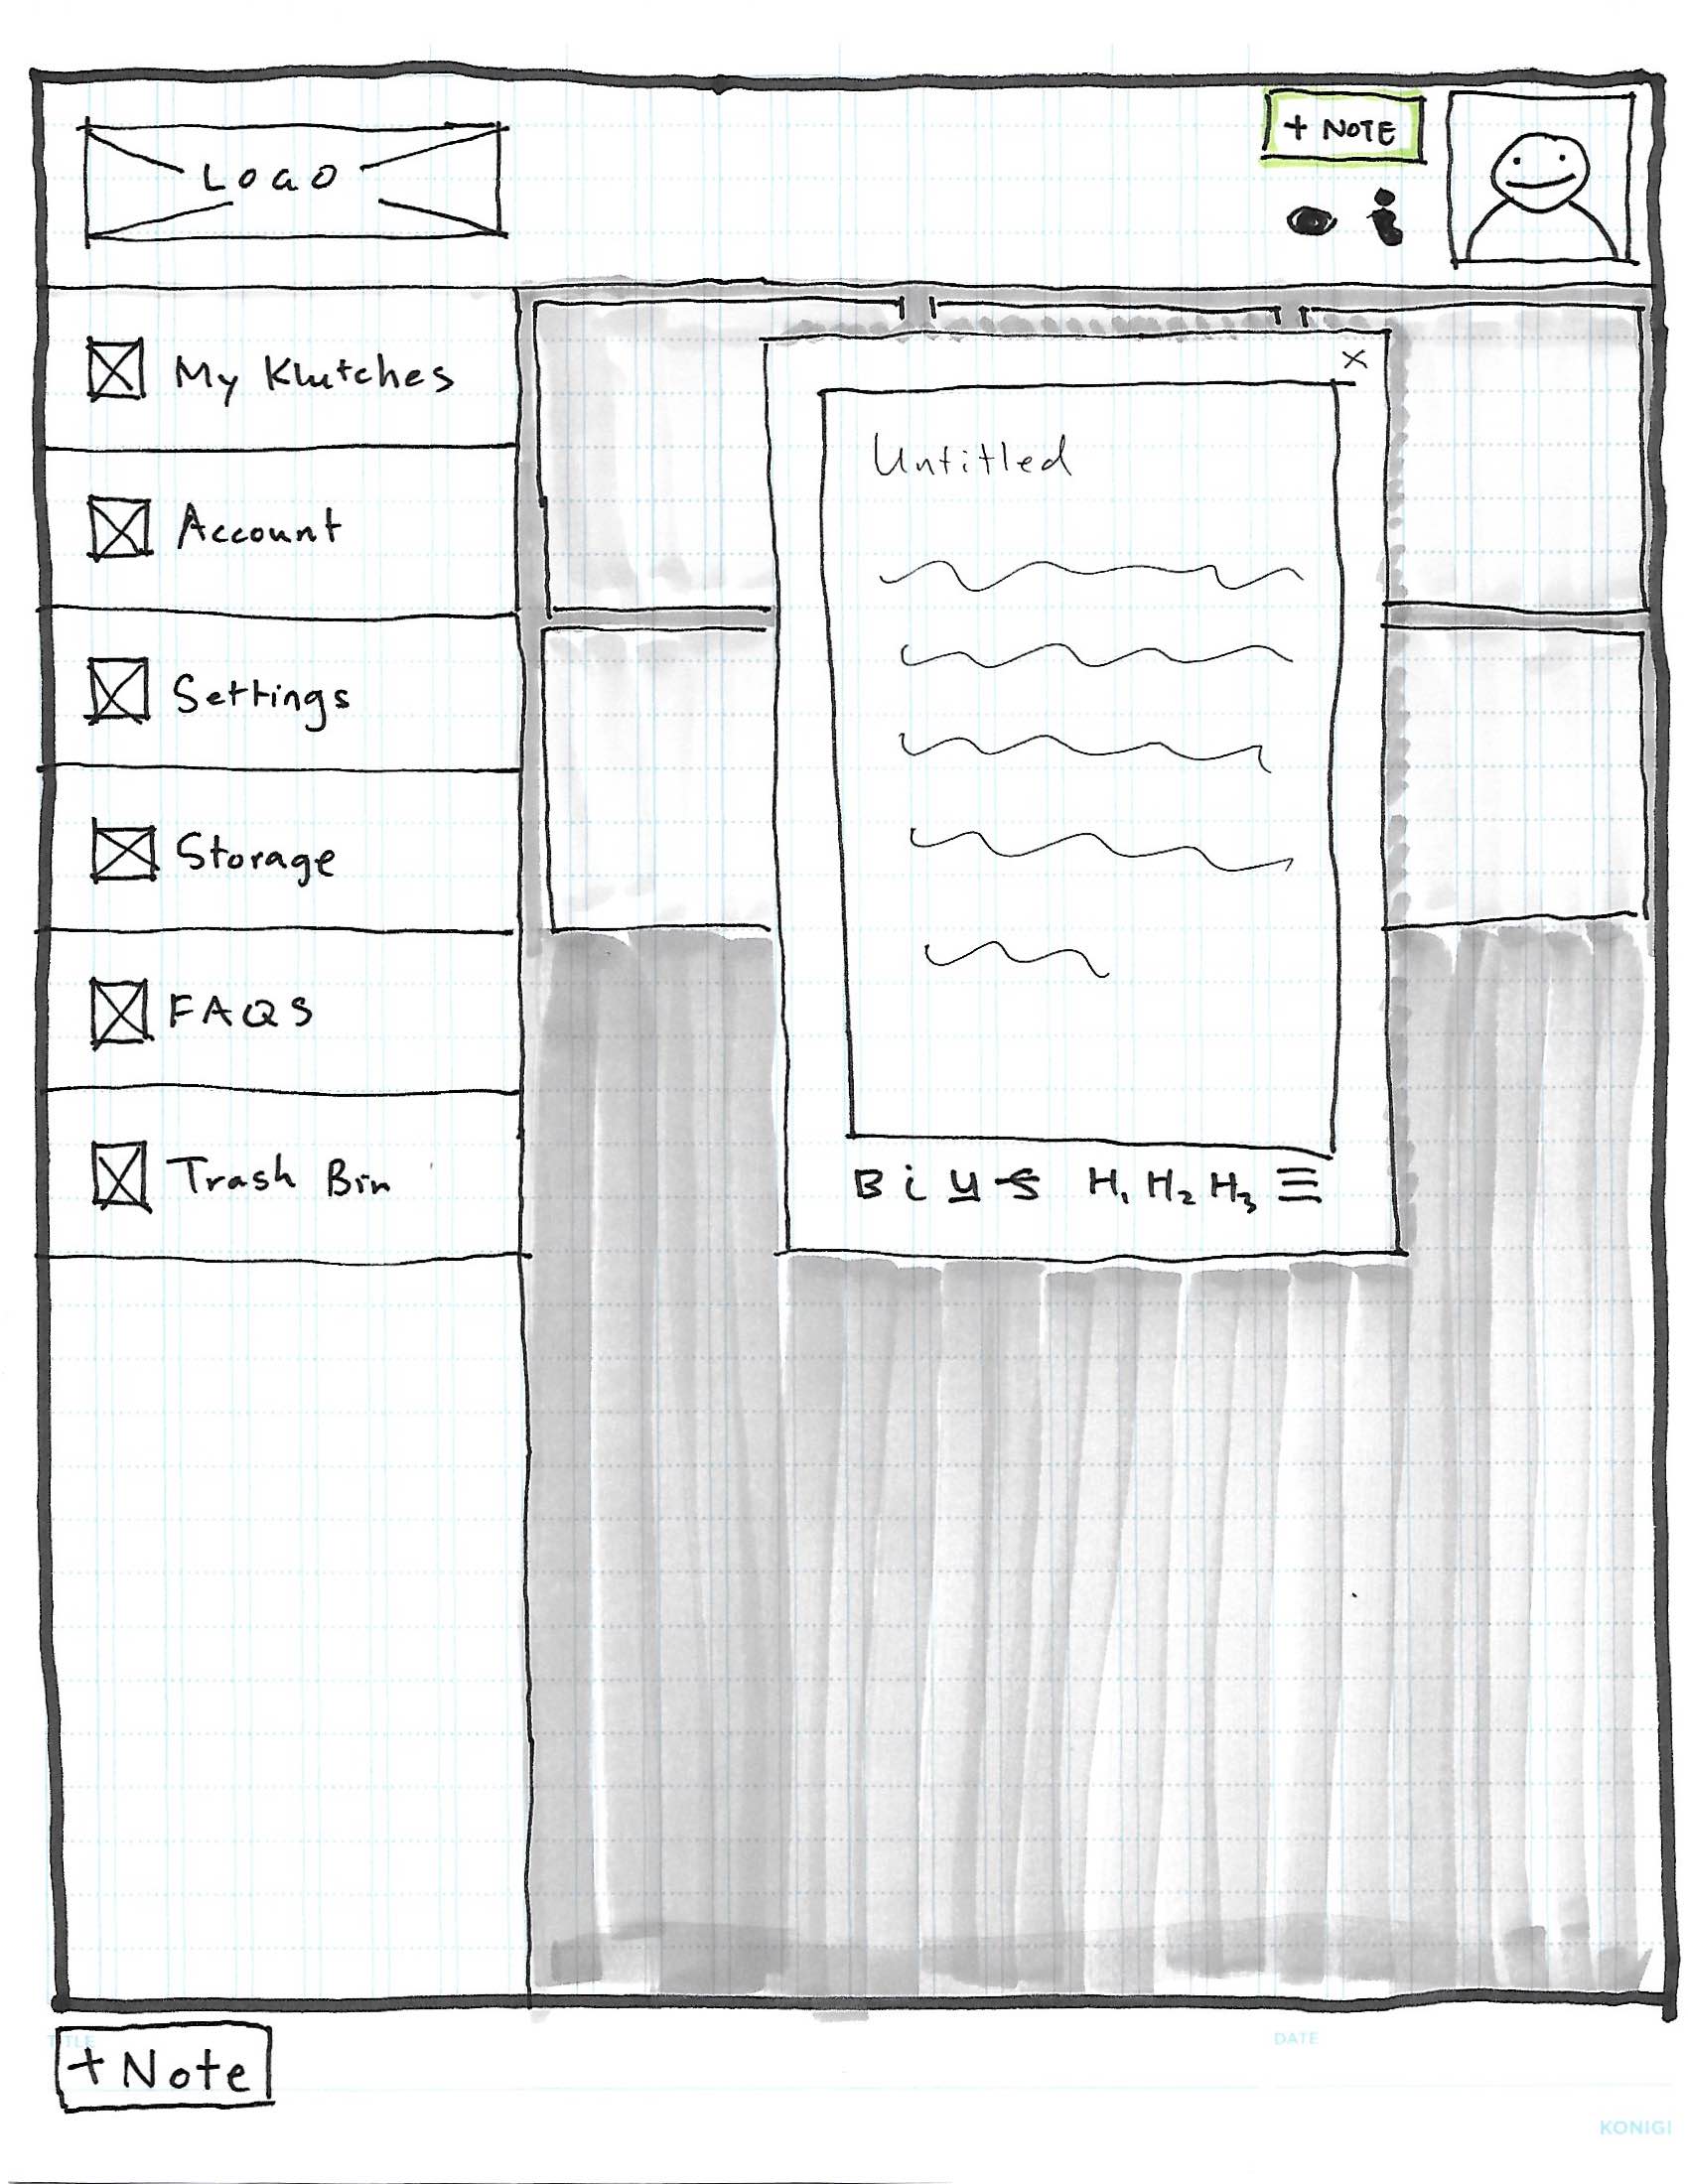 LOGO
+ NOTE
i
My Klutches
Account
Settings
Storage
FAQS
Trash Bin
x
Untitled
B i U S H1 H2 H3
TITLE
DATE
+ Note
KONIGI